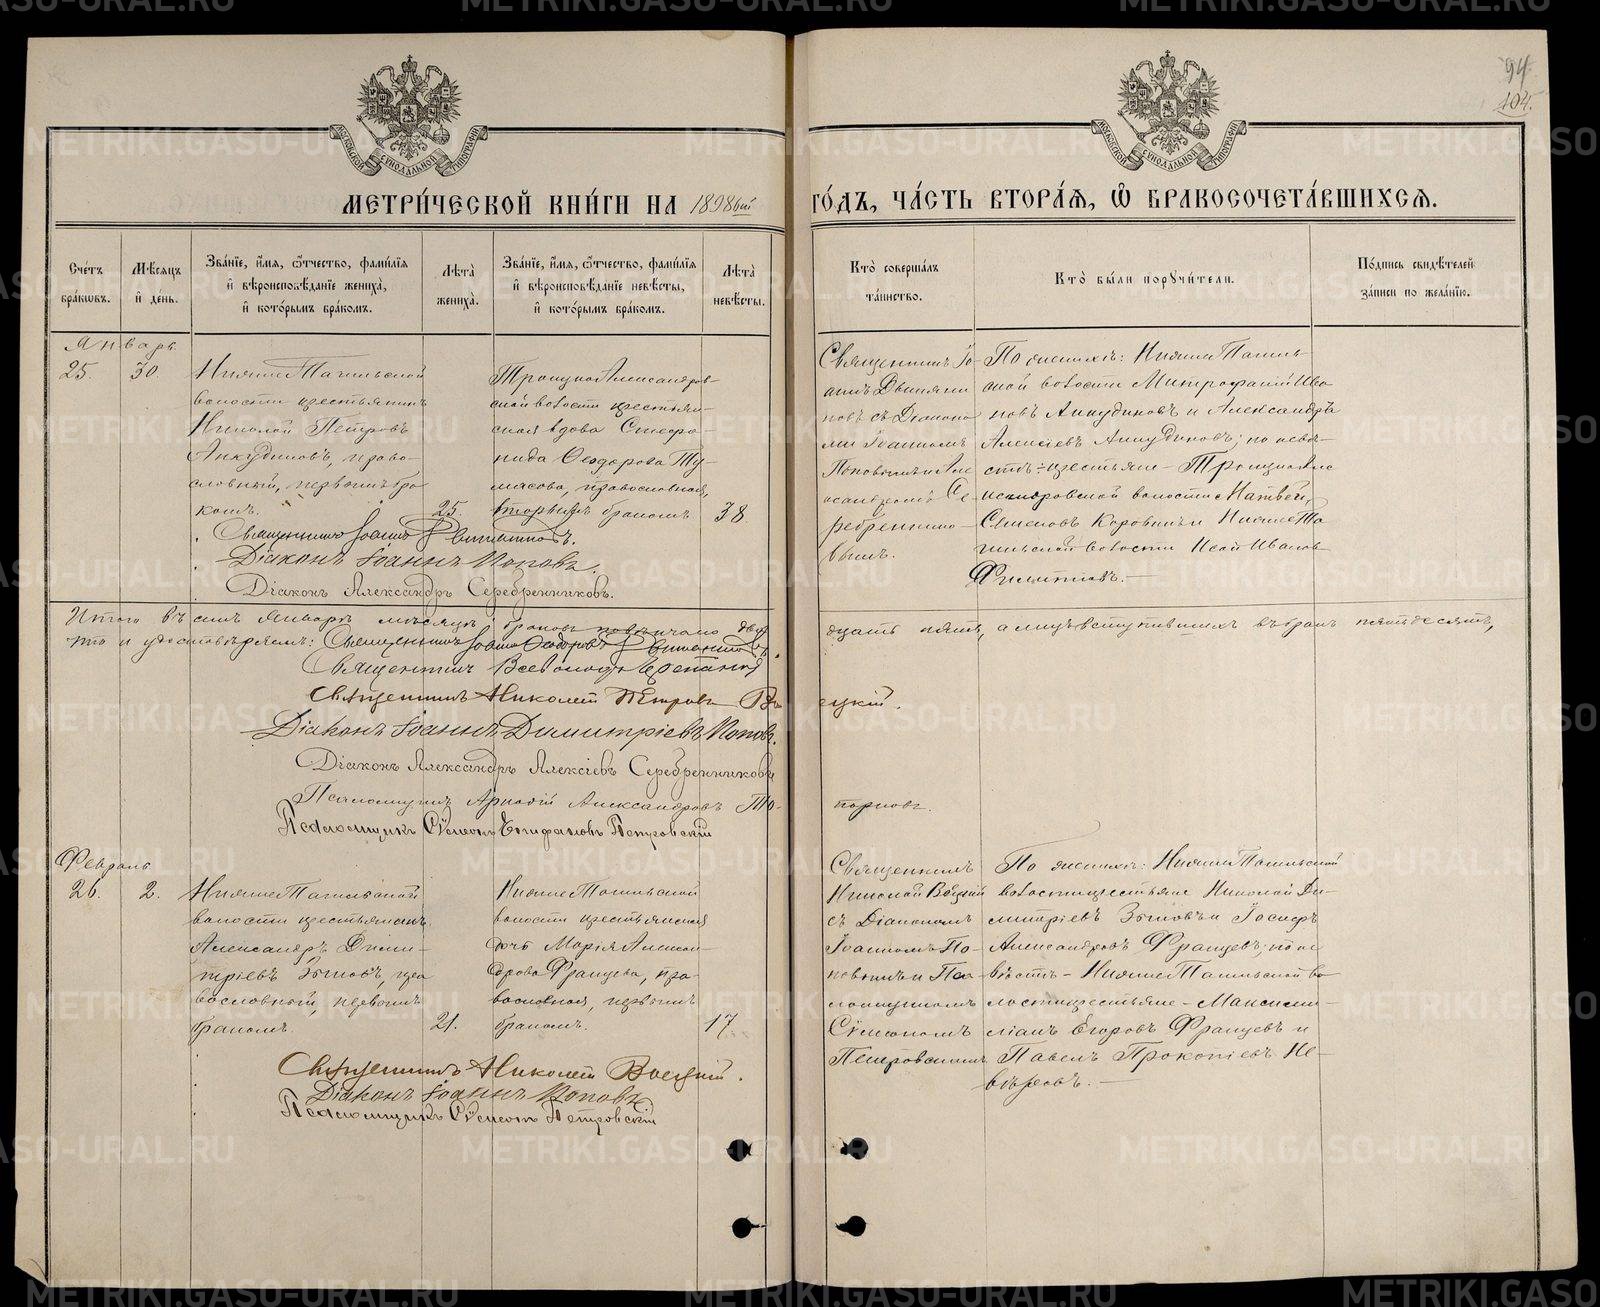 94
104.
МОСКОВСКОЙ СѴНОДАЛЬНОЙ ТИПОГРАФІИ
МОСКОВСКОЙ СѴНОДАЛЬНОЙ ТИПОГРАФІИ
МЕТРИ́ЧЕСКОЙ КНИ́ГИ НА 1898ый ГО́ДЪ, ЧА́СТЬ ВТОРА́Ѧ, Ѽ БРАКОСОЧЕТА́ВШИХСѦ.
Сче́тъ
бра́кѡвъ.
Мѣ́сѧцъ
и҆ де́нь.
Зва́нїе, и҆́мѧ, ѻ҆́тчество, фами́лїѧ
и҆ вѣроисповѣ́данїе жениха̀,
и҆ кото́рымъ бра́комъ.
Лѣ́та
жениха̀.
Зва́нїе, и҆́мѧ, ѻ҆́тчество, фами́лїѧ
и҆ вѣроисповѣ́данїе невѣ́сты,
и҆ кото́рымъ бра́комъ.
Лѣ́та
невѣ́сты.
Кто̀ соверша́лъ
та́инство.
Кто̀ бы́ли порꙋчи́тели.
По́дпись свидѣ́телей
за́писи по жела́нїю.
Январь.
25.
30.
НижнеТагильской
волости крестьянинъ
Николай Петровъ
Анкудиновъ, право-
славный, первымъ бра
комъ.
25.
ТроицкоАлександров-
ской волости крестьян-
ская вдова Стефа-
нида Ѳеодорова Ту-
масова, православная,
вторымъ бракомъ.
38
Священникъ Іо-
аннъ
съ Діакона
ми Іоанномъ
Поповымъ и Але
ксандромъ Се-
ребреннико-
вымъ.
По женихѣ: НижнеТагиль-
ской волости Митрофаній Ива
новъ Анкудиновъ и Александръ
Алексіевъ Анкудиновъ; по невѣ-
стѣ: крестьяне - ТроицкоАле
ксандровской волости Матвей
Симеоновъ Коровинъ и НижнеТа
гильской волости Исай Ивановъ
Филипповъ.
Священникъ Іоаннъ
Діаконъ Іоаннъ Поповъ.
Діаконъ Александръ Серебренниковъ.
Итого въ семъ Январѣ мѣсяцѣ браковъ повѣнчано двад
цать пять, а лицъ вступившихъ въ бракъ пятьдесятъ,
что и удостовѣряемъ: Священникъ Іоаннъ Ѳеодоровъ
Священникъ Всеволодъ
Священникъ Николай Петровъ Во
ецкій.
Діаконъ Іоаннъ Димитріевъ Поповъ.
Діаконъ Александръ Алексіевъ Серебренниковъ
Псаломщикъ Аркадій Александровъ То-
порковъ.
Псаломщикъ Сѵмеонъ Епифановъ Петровскій
Февраль
26.
2.
НижнеТагильской
волости крестьянинъ
Александръ Дими-
тріевъ Зотовъ, пра
вославный, первымъ
бракомъ.
21.
НижнеТагильской
волости крестьянская
дочь Марія Алексан-
дрова Францева, пра-
вославная, первымъ
бракомъ.
17
Священникъ
Николай Воецкій
съ Діакономъ
Іоанномъ По-
повымъ и Пса-
ломщикомъ
Сѵмеономъ
Петровскимъ
По женихѣ: НижнеТагильской
волости крестьяне Николай Ди-
митріевъ Зотовъ и Іосифъ
Александровъ Францевъ; по не
вѣстѣ - НижнеТагильской во
лости крестьяне - Максими-
ліанъ Егоровъ Францевъ и
Павелъ Прокопіевъ Не-
вѣровъ.
Священникъ Николай Воецкій.
Діаконъ Іоаннъ Поповъ
Псаломщикъ Сѵмеонъ Петровскій
METRIKI.GASO-URAL.RU